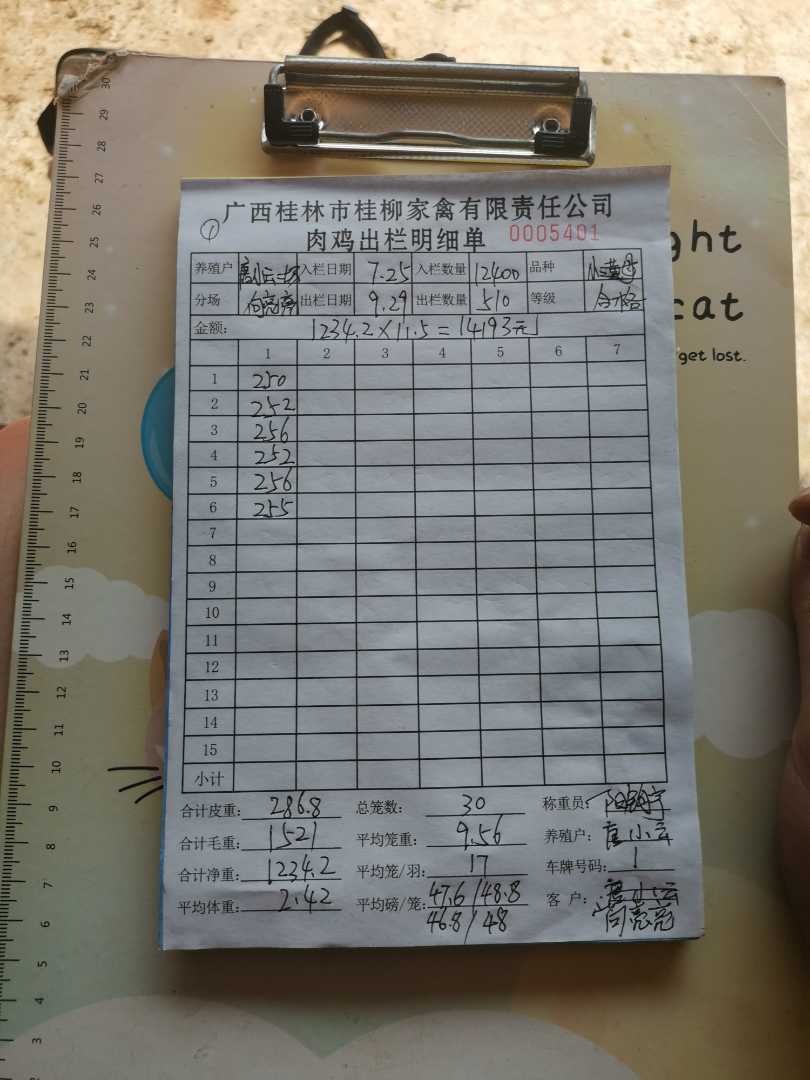 广西桂林市桂柳家禽有限责任公司
① 肉鸡出栏明细单 0005401
养殖户 入栏日期 7.25 入栏数量 12400 品种
分场 向亮亮 出栏日期 9.29 出栏数量 510 等级 合格
金额: 1234.2×11.5=14193元
1 2 3 4 5 6 7
1 250
2 252
3 256
4 252
5 256
6 255
7
8
9
10
11
12
13
14
15
小计
合计皮重: 286.8 总笼数: 30 称重员:
合计毛重: 1521 平均笼重: 9.56 养殖户: 唐小云
合计净重: 1234.2 平均笼/羽: 17 车牌号码: 1
平均体重: 2.42 平均磅/笼: 47.6/48.8 客户: 唐小云
46.8/48 向亮亮
ght
cat
get lost.
30
29
28
27
26
25
24
23
22
21
20
19
18
17
16
15
14
13
12
11
10
9
8
7
6
5
4
3